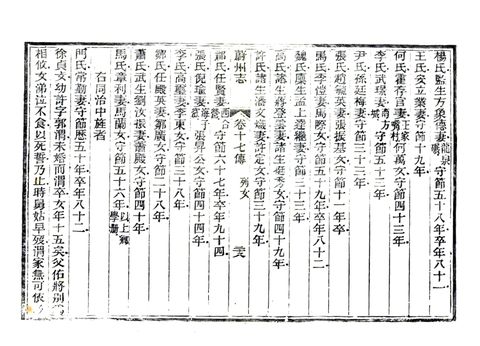 楊氏監生方象德妻守節五十八年卒年八十一
王氏安立業妻守節十九年
何氏霍存官妻何萬女守節四十三年
李氏武妻守節四十二年
尹氏孫廷梅妻守節三十三年
張氏趙毓英妻張振基女守節十一年卒
馬氏李愷妻馬際女守節四十一年卒年八十二
魏氏廩生孟上達繼妻守節三十年
高氏諸生蔣登妻諸生挺秀女守節四十九年
許氏諸生潘文妻許定女守節四十九年
蔚州志
卷十七傳 列女
鄭氏任賢妻西合營守節六十七年卒年九十四
張氏倪瑜妻張昇公女守節四十四年
李氏高妻李東女守節三十八年
郭氏任殿英妻郭廣女守節二十八年
蕭氏武生劉漢妻蕭殿女守節四十年
馬氏章利妻馬蘭女守節五十六年以上鄉學冊
右同治中旌者
門氏常勤妻守節歷五十年卒年八十一
徐貞女幼許字郭渭未婚而渭卒女年十五矣父佑將別
相攸女涕泣不食以死誓乃止時舅姑早歿渭家無可依